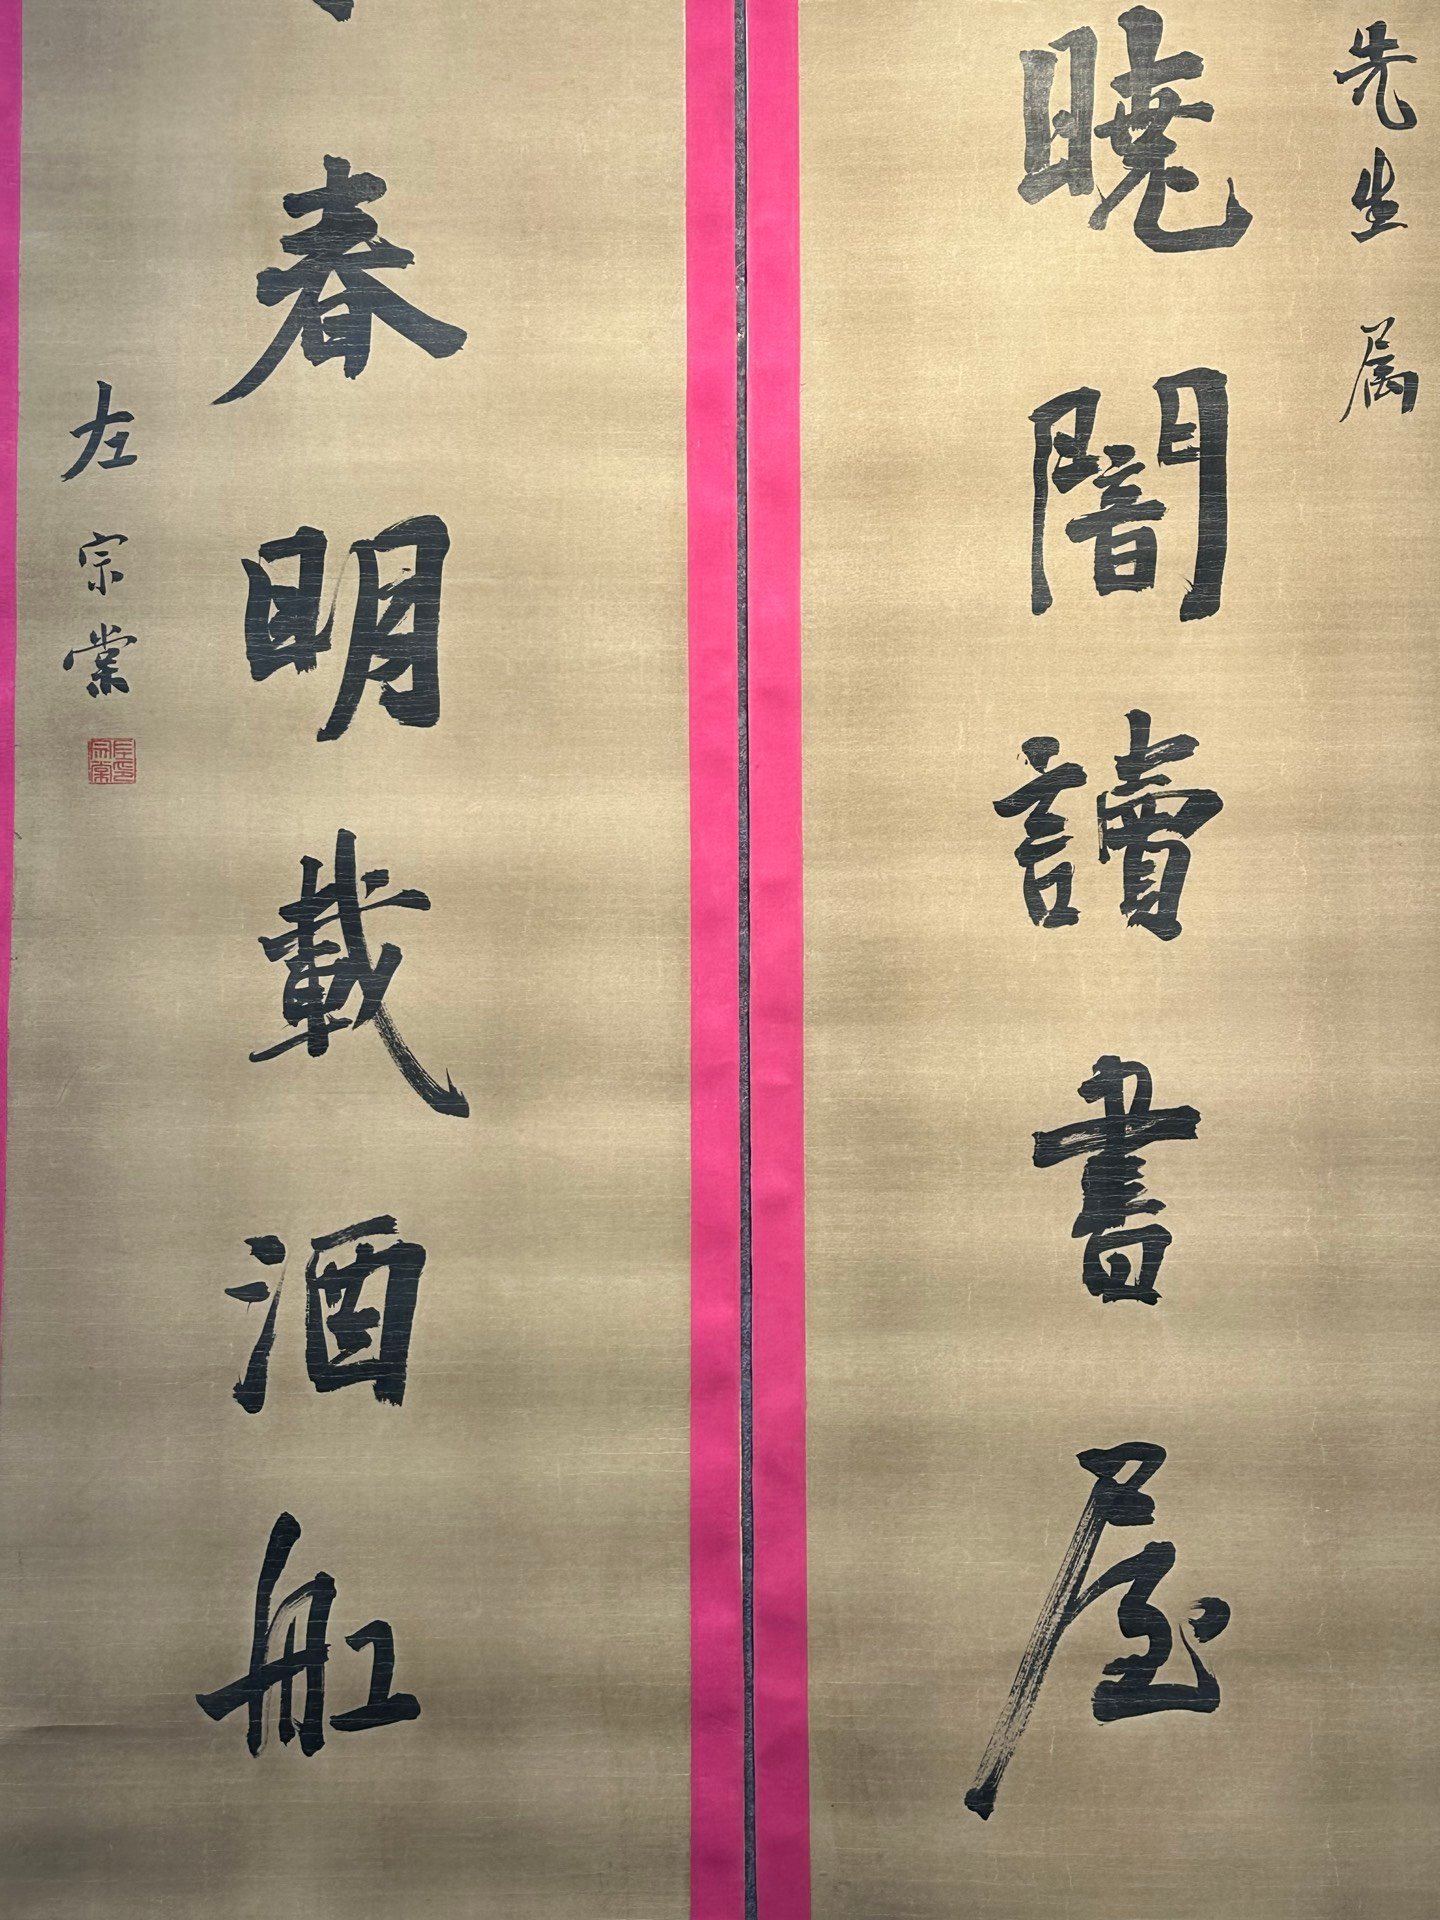 先生属
曉闇讀書屋
春明載酒船
左宗棠